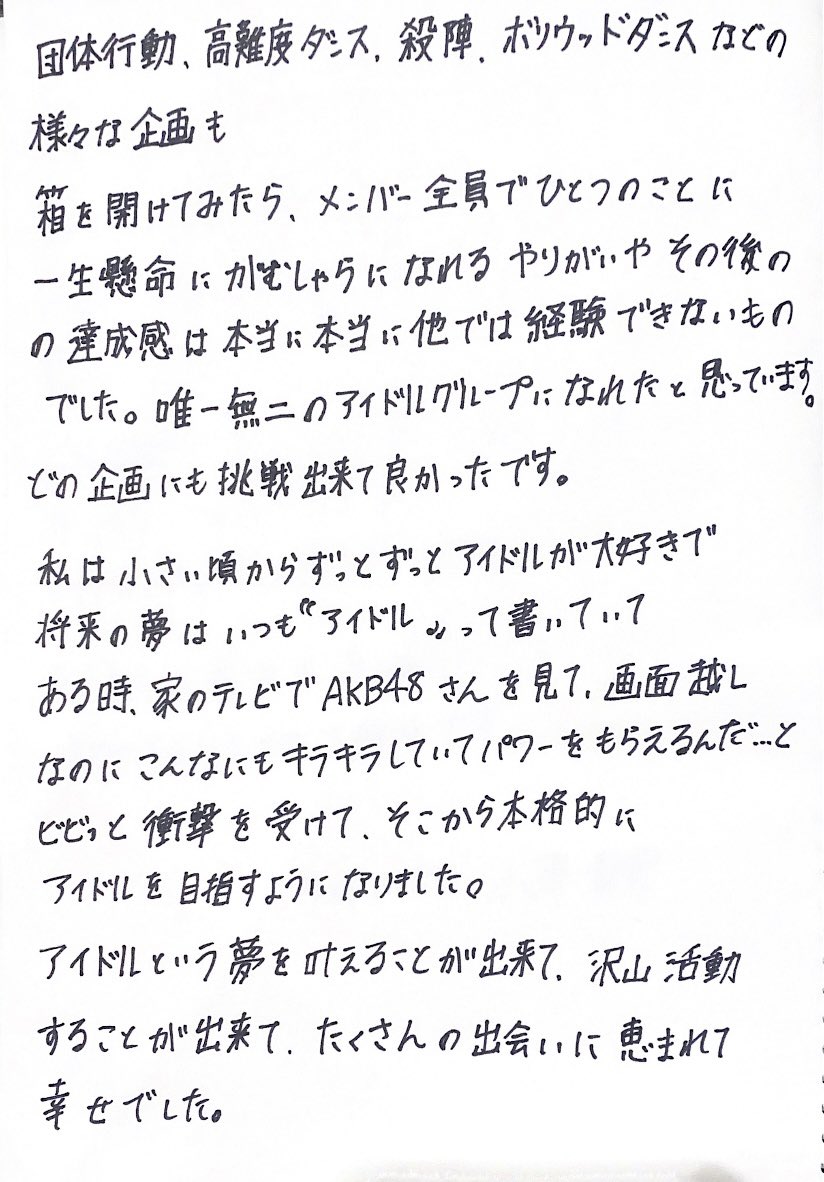 団体行動、高難度ダンス、殺陣、ボリウッドダンスなどの
様々な企画も
箱を開けてみたら、メンバー全員でひとつのことに
一生懸命にがむしゃらになれるやりがいやその後の
の達成感は本当に本当に他では経験できないもの
でした。唯一無二のアイドルグループになれたと思っています。
どの企画にも挑戦出来て良かったです。
私は小さい頃からずっとずっとアイドルが大好きで
将来の夢はいつも『アイドル』って書いていて
ある時、家のテレビでAKB48さんを見て、画面越し
なのにこんなにもキラキラしていてパワーをもらえるんだ…と
ビビっと衝撃を受けて、そこから本格的に
アイドルを目指すようになりました。
アイドルという夢を叶えることが出来て、沢山活動
することが出来て、たくさんの出会いに恵まれて
幸せでした。